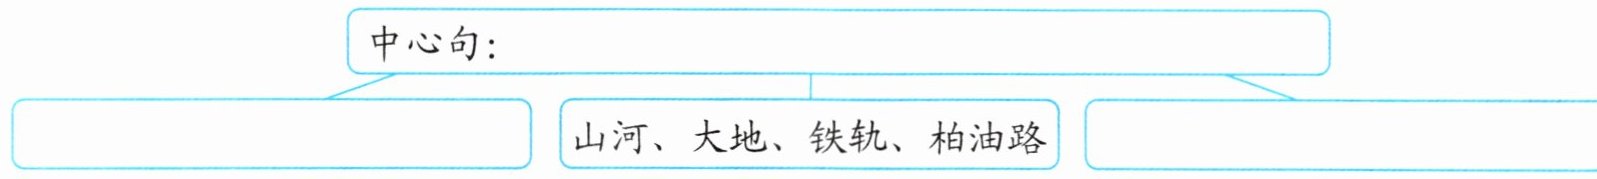 中心句:
山河、大地、铁轨、柏油路